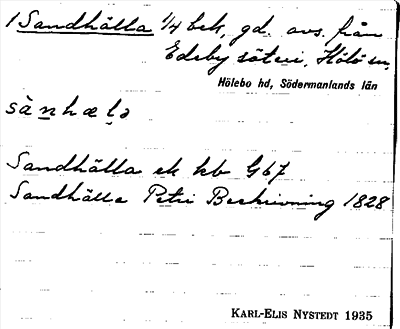 1 Sandhälla 1/4 bek, gd. avs. från
Edeby säteri, Hölö sn,
Hölebo hd, Södermanlands län
sànhælə
Sandhälla ek kb G67
Sandhälla Petri Beskrivning 1828
KARL-ELIS NYSTEDT 1935